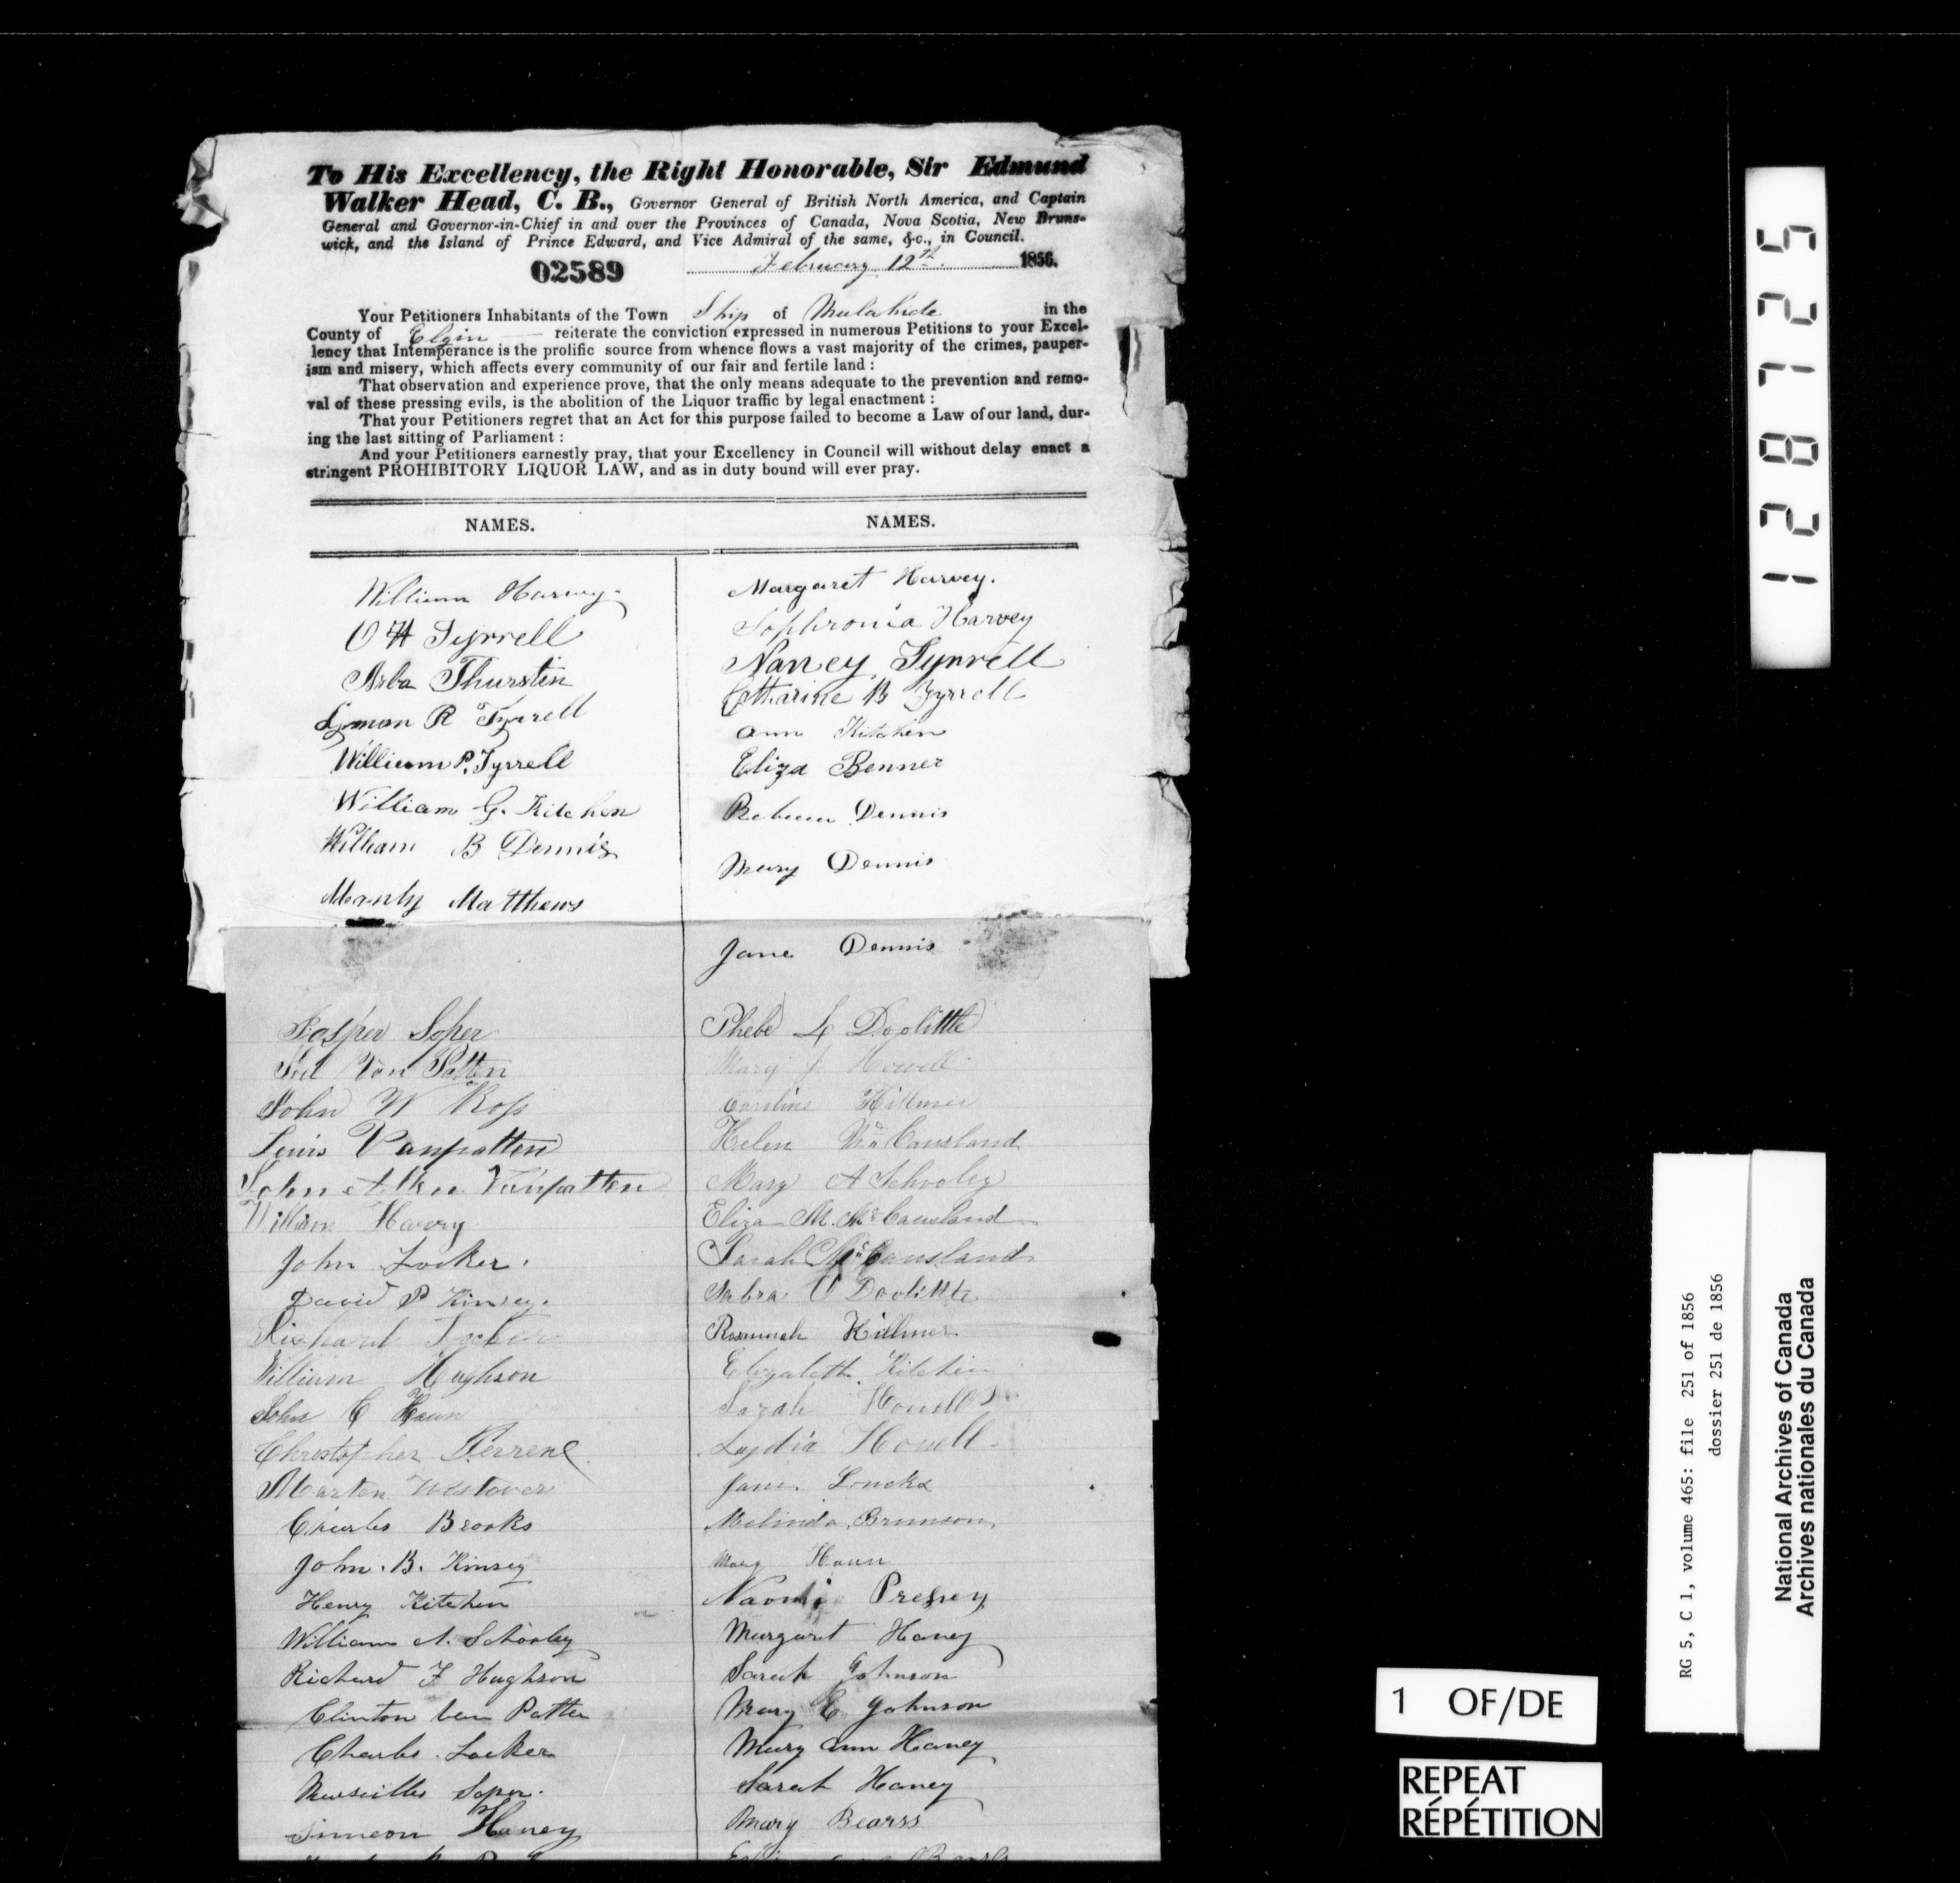 To His Excellency, the Right Honorable, Sir Edmund
Walker Head, C. B., Governor General of British North America, and Captain
General and Governor-in-Chief in and over the Provinces of Canada, Nova Scotia, New Bruns-
wick, and the Island of Prince Edward, and Vice Admiral of the same, &c., in Council.
02589 February 12th 1856.
Your Petitioners Inhabitants of the Town Ship of Malahide in the
County of Elgin reiterate the conviction expressed in numerous Petitions to your Excel-
lency that Intemperance is the prolific source from whence flows a vast majority of the crimes, pauper-
ism and misery, which affects every community of our fair and fertile land :
That observation and experience prove, that the only means adequate to the prevention and remo-
val of these pressing evils, is the abolition of the Liquor traffic by legal enactment :
That your Petitioners regret that an Act for this purpose failed to become a Law of our land, dur-
ing the last sitting of Parliament :
And your Petitioners earnestly pray, that your Excellency in Council will without delay enact a
stringent PROHIBITORY LIQUOR LAW, and as in duty bound will ever pray.
NAMES.
William Harvey.
O H Tyrrell
Arba Thurstin
Lyman R Tyrrell
William P. Tyrrell
William G. Kitchen
William B Dennis
Manly Matthews
Jasper Soper
Van Patten
John W Ross
Lewis Vanpatten
John Vanpatten
William Harvey
John Locker.
David P Kinsey.
Richard Locker
William Hughson
John C Haun
Christopher
Marten Westover
Charles Brooks
John. B. Kinsey
Henry Kitchen
William A. Schooley
Richard F Hughson
Clinton van Patten
Charles Locker
Marseilles Soper.
Simeon Haney
NAMES.
Margaret Harvey.
Sophronia Harvey
Nancy Tyrrell
Catharine B Tyrrell
Ann Kitchen
Eliza Benner
Rebecca Dennis
Mary Dennis
Jane Dennis
Phebe L Doolittle
Mary J. Howell
Caroline Killmer
Helen McCausland
Mary A Schooley
Eliza M. McCausland
Sarah McCausland
Sabra O Doolittle
Rosannah Killmer
Elizabeth Kitchin
Sarah Howell
Lydia Howell
Jane Loucks
Melinda Brunson
Mary Haun
Naomi Pressey
Margaret Haney
Sarah Johnson
Mary E Johnson
Mary Ann Haney
Sarah Haney
Mary Bearss
128725
RG 5, C 1, volume 465: file 251 of 1856
dossier 251 de 1856
National Archives of Canada
Archives nationales du Canada
1 OF/DE
REPEAT
RÉPÉTITION